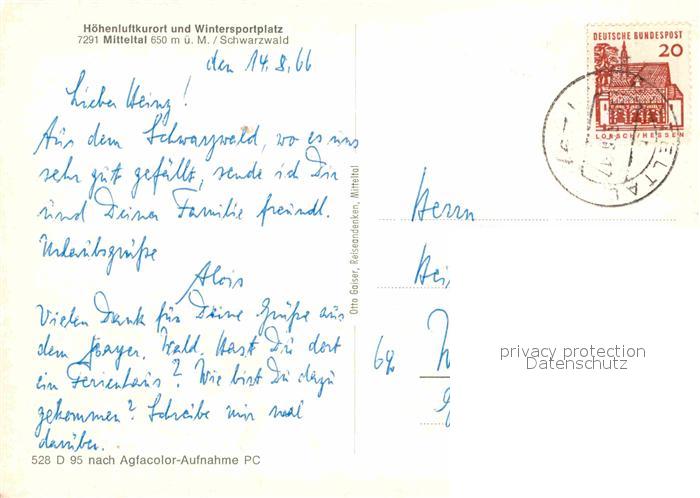 Höhenluftkurort und Wintersportplatz
7291 Mitteltal 650 m ü. M. / Schwarzwald
den 14.8.66
Lieber Heinz!
Aus dem Schwarzwald, wo es uns
sehr gut gefällt, sende ich Dir
und Deiner Familie freundl.
Urlaubsgrüße
Alois
Vielen Dank für Deine Grüße aus
dem Bayer. Wald. Hast Du dort
ein Ferienhaus? Wie bist Du dazu
gekommen? Schreibe mir mal
darüber.
528 D 95 nach Agfacolor-Aufnahme PC
Otto Gaiser, Reiseandenken, Mitteltal
DEUTSCHE BUNDESPOST
20
LORSCH/HESSEN
Herrn
Hei
privacy protection
Datenschutz